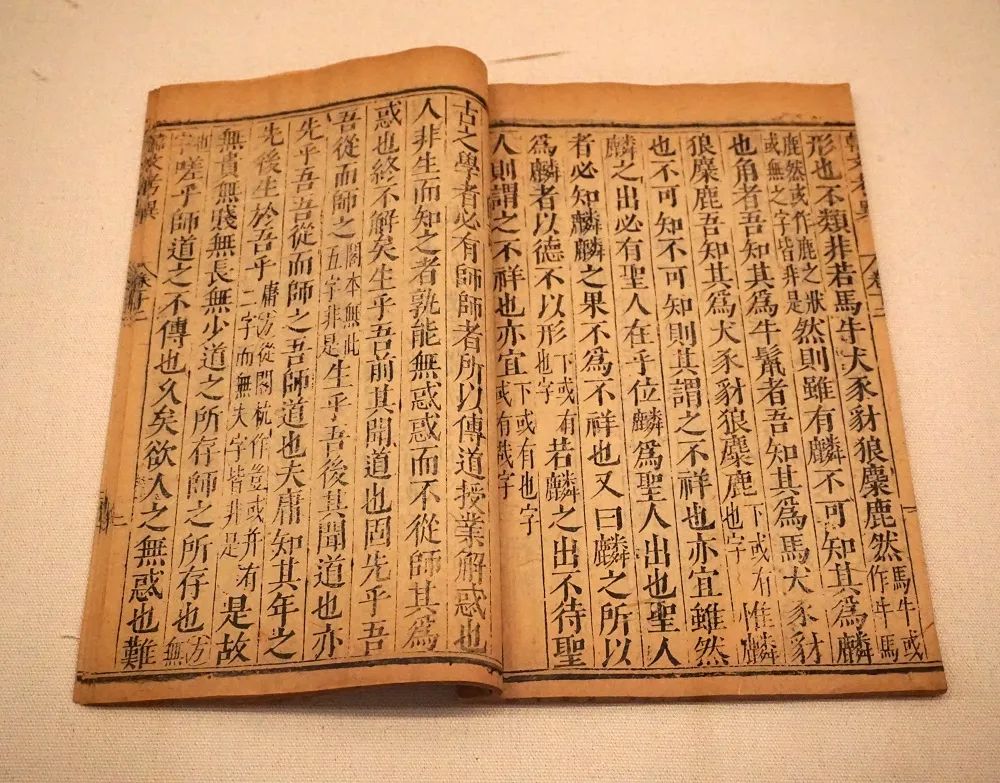 韓文考異 卷十二 一
形也不類非若馬牛犬豕豺狼麋鹿然馬牛或作牛馬
鹿然或作鹿之狀或無之字皆非是然則雖有麟不可知其爲麟
也角者吾知其爲牛鬣者吾知其爲馬犬豕豺
狼麋鹿吾知其爲犬豕豺狼麋鹿下或有也字惟麟
也不可知不可知則其謂之不祥也亦宜雖然
麟之出必有聖人在乎位麟爲聖人出也聖人
者必知麟麟之果不爲不祥也又曰麟之所以
爲麟者以德不以形下或有也字若麟之出不待聖
人則謂之不祥也亦宜下或有也字或有哉字
古之學者必有師師者所以傳道授業解惑也
人非生而知之者孰能無惑惑而不從師其爲
惑也終不解矣生乎吾前其聞道也固先乎吾
吾從而師之閣本無此五字非是生乎吾後其聞道也亦
先乎吾吾從而師之吾師道也夫庸知其年之
先後生於吾乎庸方從閣杭作豈或并有二字而無夫字皆非是是故
無貴無賤無長無少道之所存師之所存也方無
字嗟乎師道之不傳也久矣欲人之無惑也難
韓文考異 卷十二 一